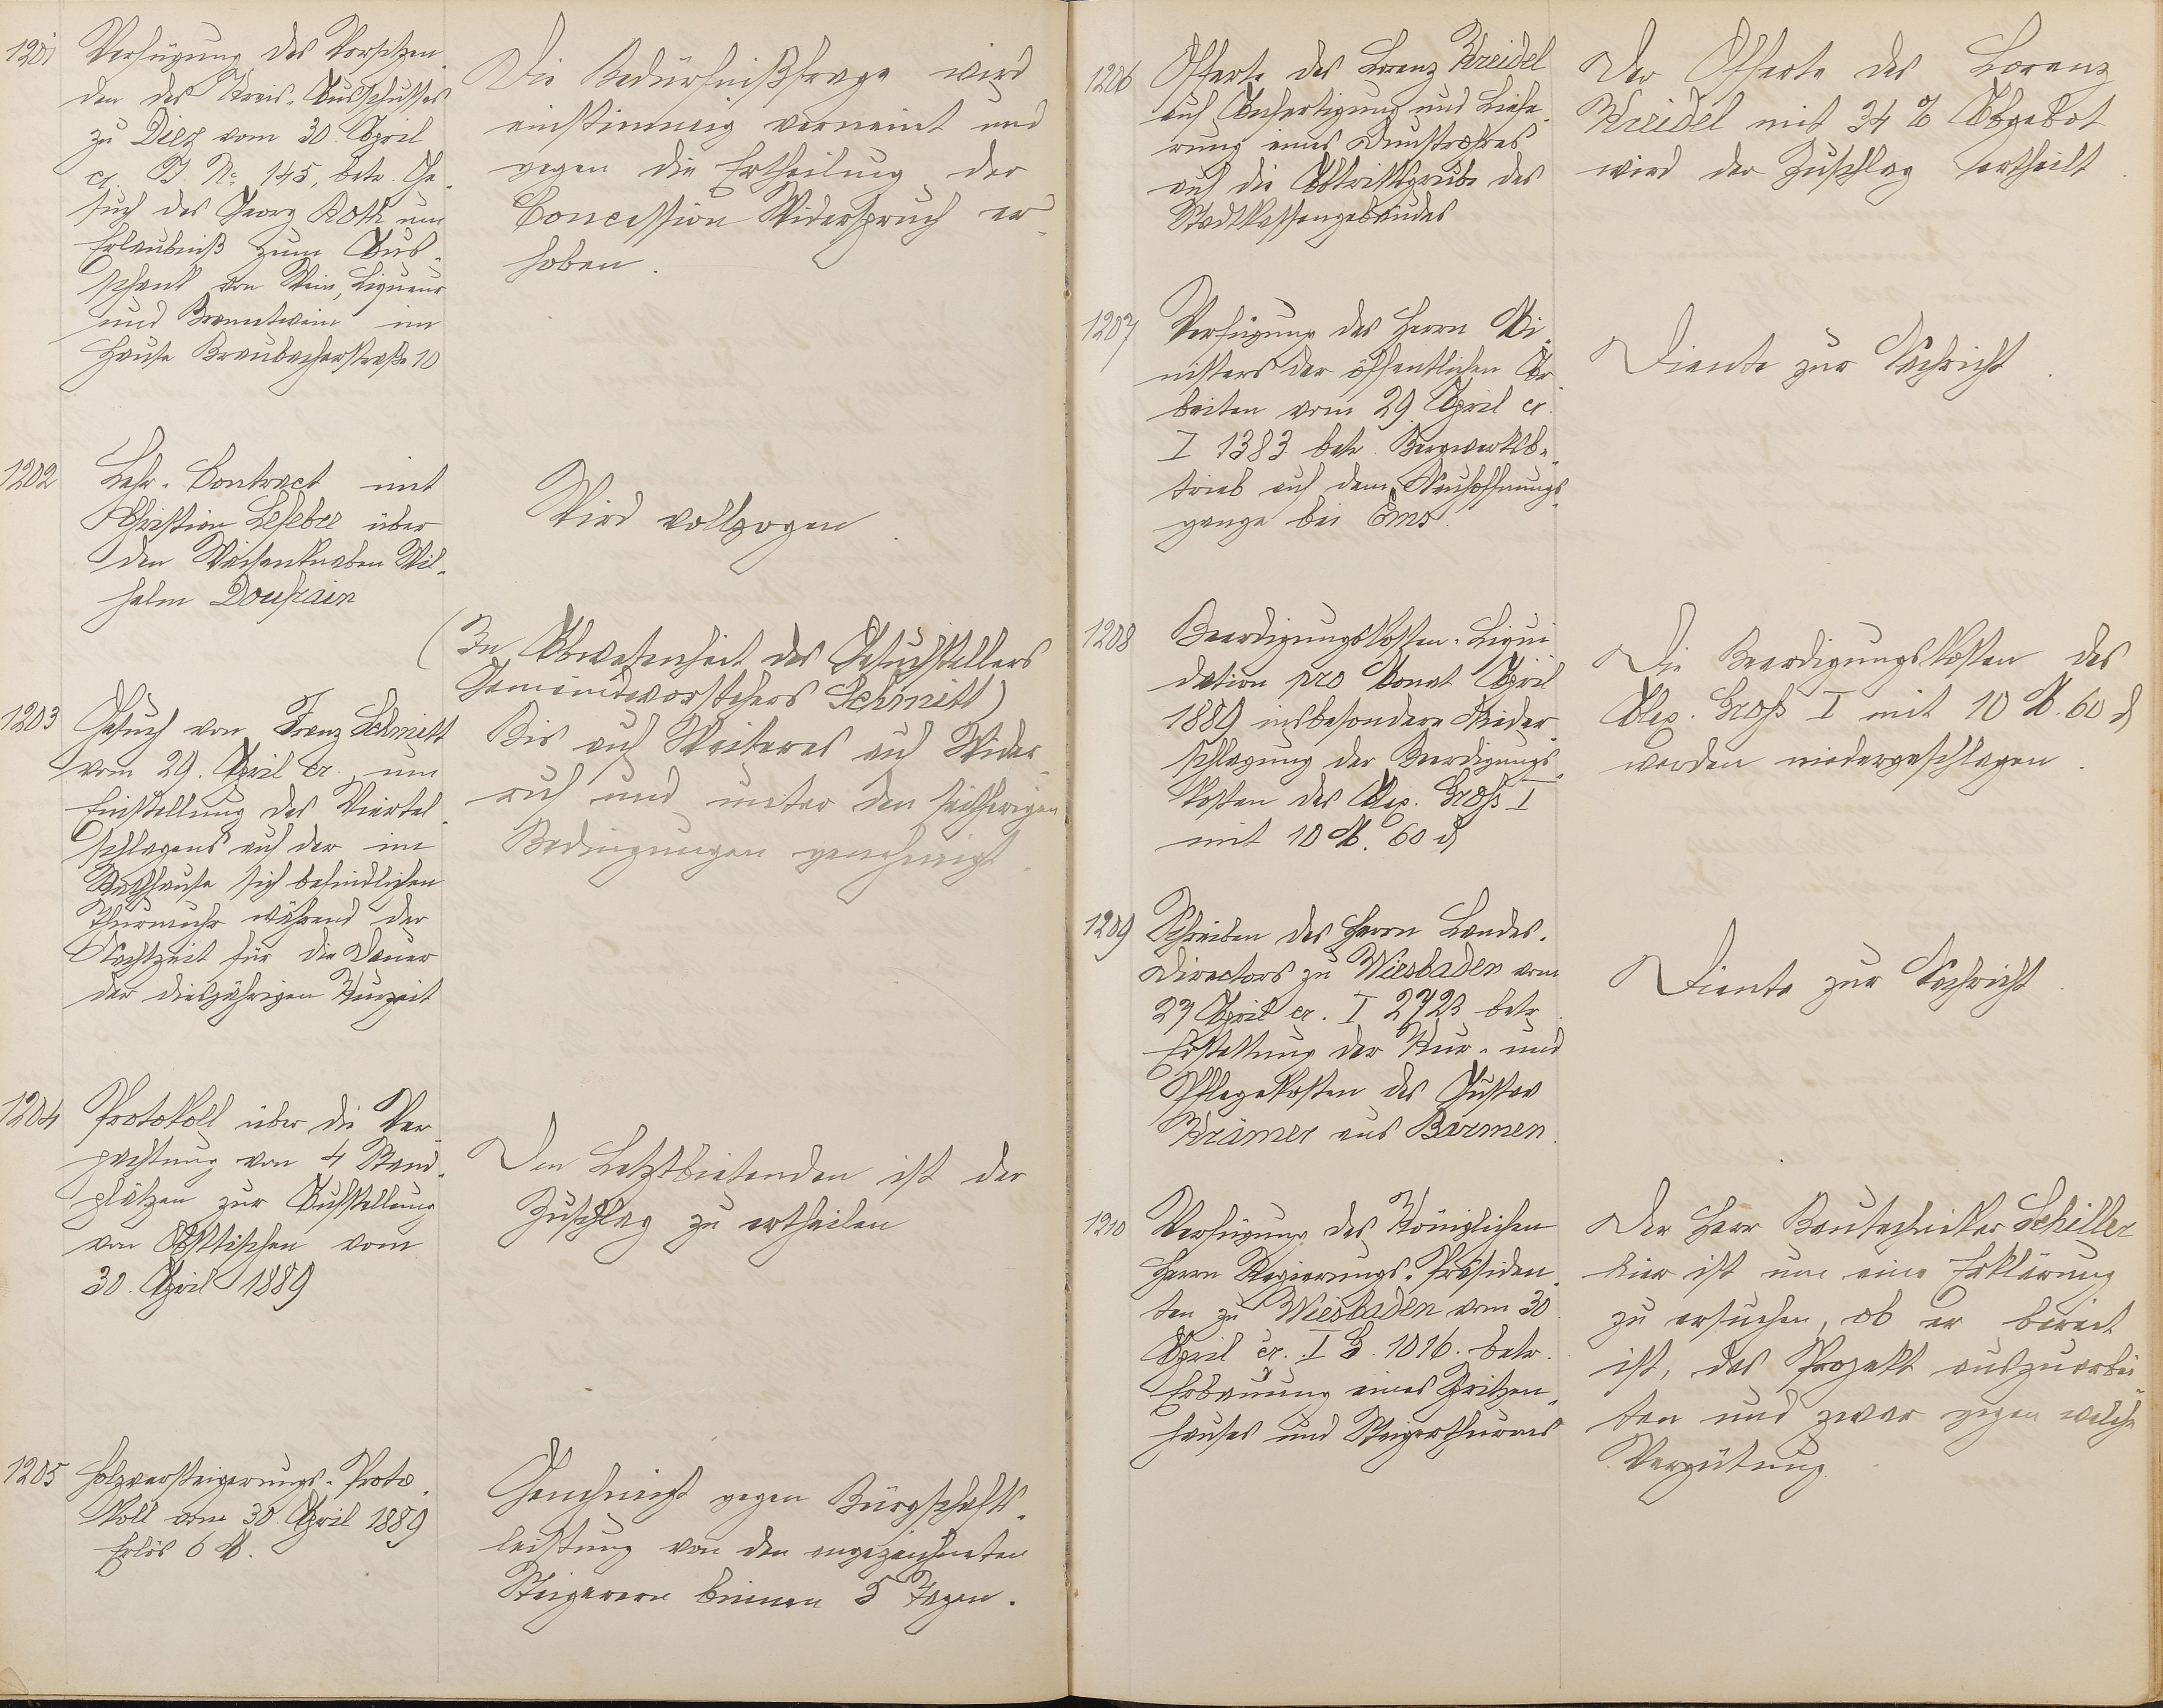 1201
Verfügung des Vorsitzen-
den des Kreis-Ausschusses
zu Diez vom 30 April
cr. J. No 145, betr. Ge-
such des Georg Roth um
Erlaubniß zum Aus-
schank von Wein, Liqueur
und Branntwein im
Hause Braubacherstraße 10
Die Bedürfnißfrage wird
einstimmig verneint und
gegen die Ertheilung der
Concession Widerspruch er-
hoben.
1202
Lehr-Contract mit
Christian Lefebre über
den Waisenknaben Wil-
helm Doufrain
Wird vollzogen.
1203
Gesuch von Franz Schmitt
vom 29. April cr. um
Einstellung des Viertel-
schlagens auf der im
Rathhause sich befindlichen
Thurmuhr während der
Nachtzeit für die Dauer
der diesjährigen Kurzeit
(In Abwesenheit des Gesuchstellers
Gemeindevorstehers Schmitt)
Bis auf Weiteres auf Wider-
ruf und unter den seitherigen
Bedingungen genehmigt.
1204
Protokoll über die Ver-
pachtung von 4 Stand-
plätzen zur Aufstellung
von Obsttischen vom
30. April 1889
Den Letztbietenden ist der
Zuschlag zu ertheilen
1205
Holzversteigerungs-Proto-
koll vom 30 April 1889
Erlös 6 M.
Genehmigt gegen Bürgschafts-
leistung von den angezeichneten
Steigerern binnen 5 Tagen.
1206
Offerte des Lorenz Kreidel
auf Anfertigung und Liefe-
rung eines Dunstrohres
auf die Abtrittsgrube des
Stadtkassengebäudes
Der Offerte des Lorenz
Kreidel mit 34 % Abgebot
wird der Zuschlag ertheilt.
1207
Verfügung des Herrn Mi-
nisters der öffentlichen Ar-
beiten vom 29 April cr.
I 1383 betr. Bergwerksbe-
trieb auf dem Neuhoffnungs-
gange bei Ems.
Diente zur Nachricht.
1208
Beerdigungskosten-Liqui-
dation pro Monat April
1889 insbesondere Nieder-
schlagung der Beerdigungs-
kosten des Alex. Groß I
mit 10 M. 60 d
Die Beerdigungskosten des
Alex. Groß I mit 10 M. 60 d
werden niedergeschlagen.
1209
Schreiben des Herrn Landes-
directors zu Wiesbaden vom
27 April cr. I 2723 betr.
Erstattung der Kur- und
Pflegekosten des Gustav
Krämer aus Barmen.
Diente zur Nachricht.
1210
Verfügung des Königlichen
Herrn Regierungs-Präsiden-
ten zu Wiesbaden vom 30
April cr. I G. 1016. betr.
Erbauung eines Spritzen-
hauses und Steigerthurms
Der Herr Bautechniker Schiller
hier ist um eine Erklärung
zu ersuchen, ob er bereit
ist, das Projekt auszuarbei-
ten und zwar gegen welche
Vergütung.